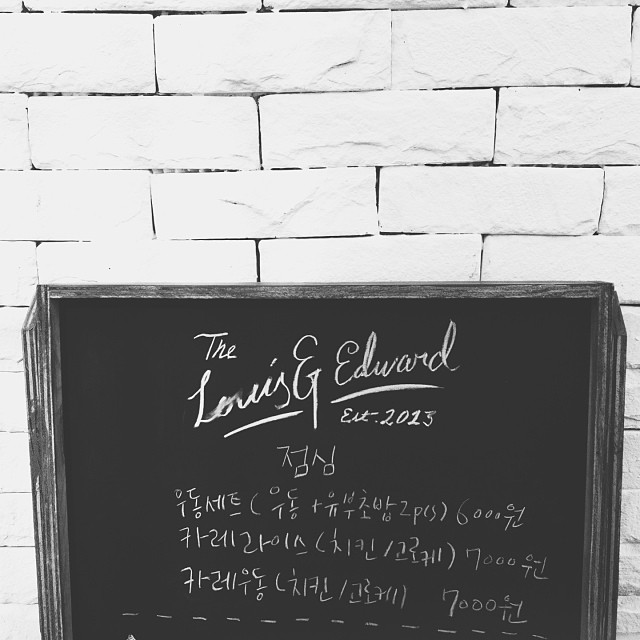 The
Louis & Edward
Est. 2013
점심
우동세트 (우동 + 유부초밥 2p(s) 6000원
카레라이스 (치킨/고로케) 7000원
카레우동 (치킨/고로케) 7000원